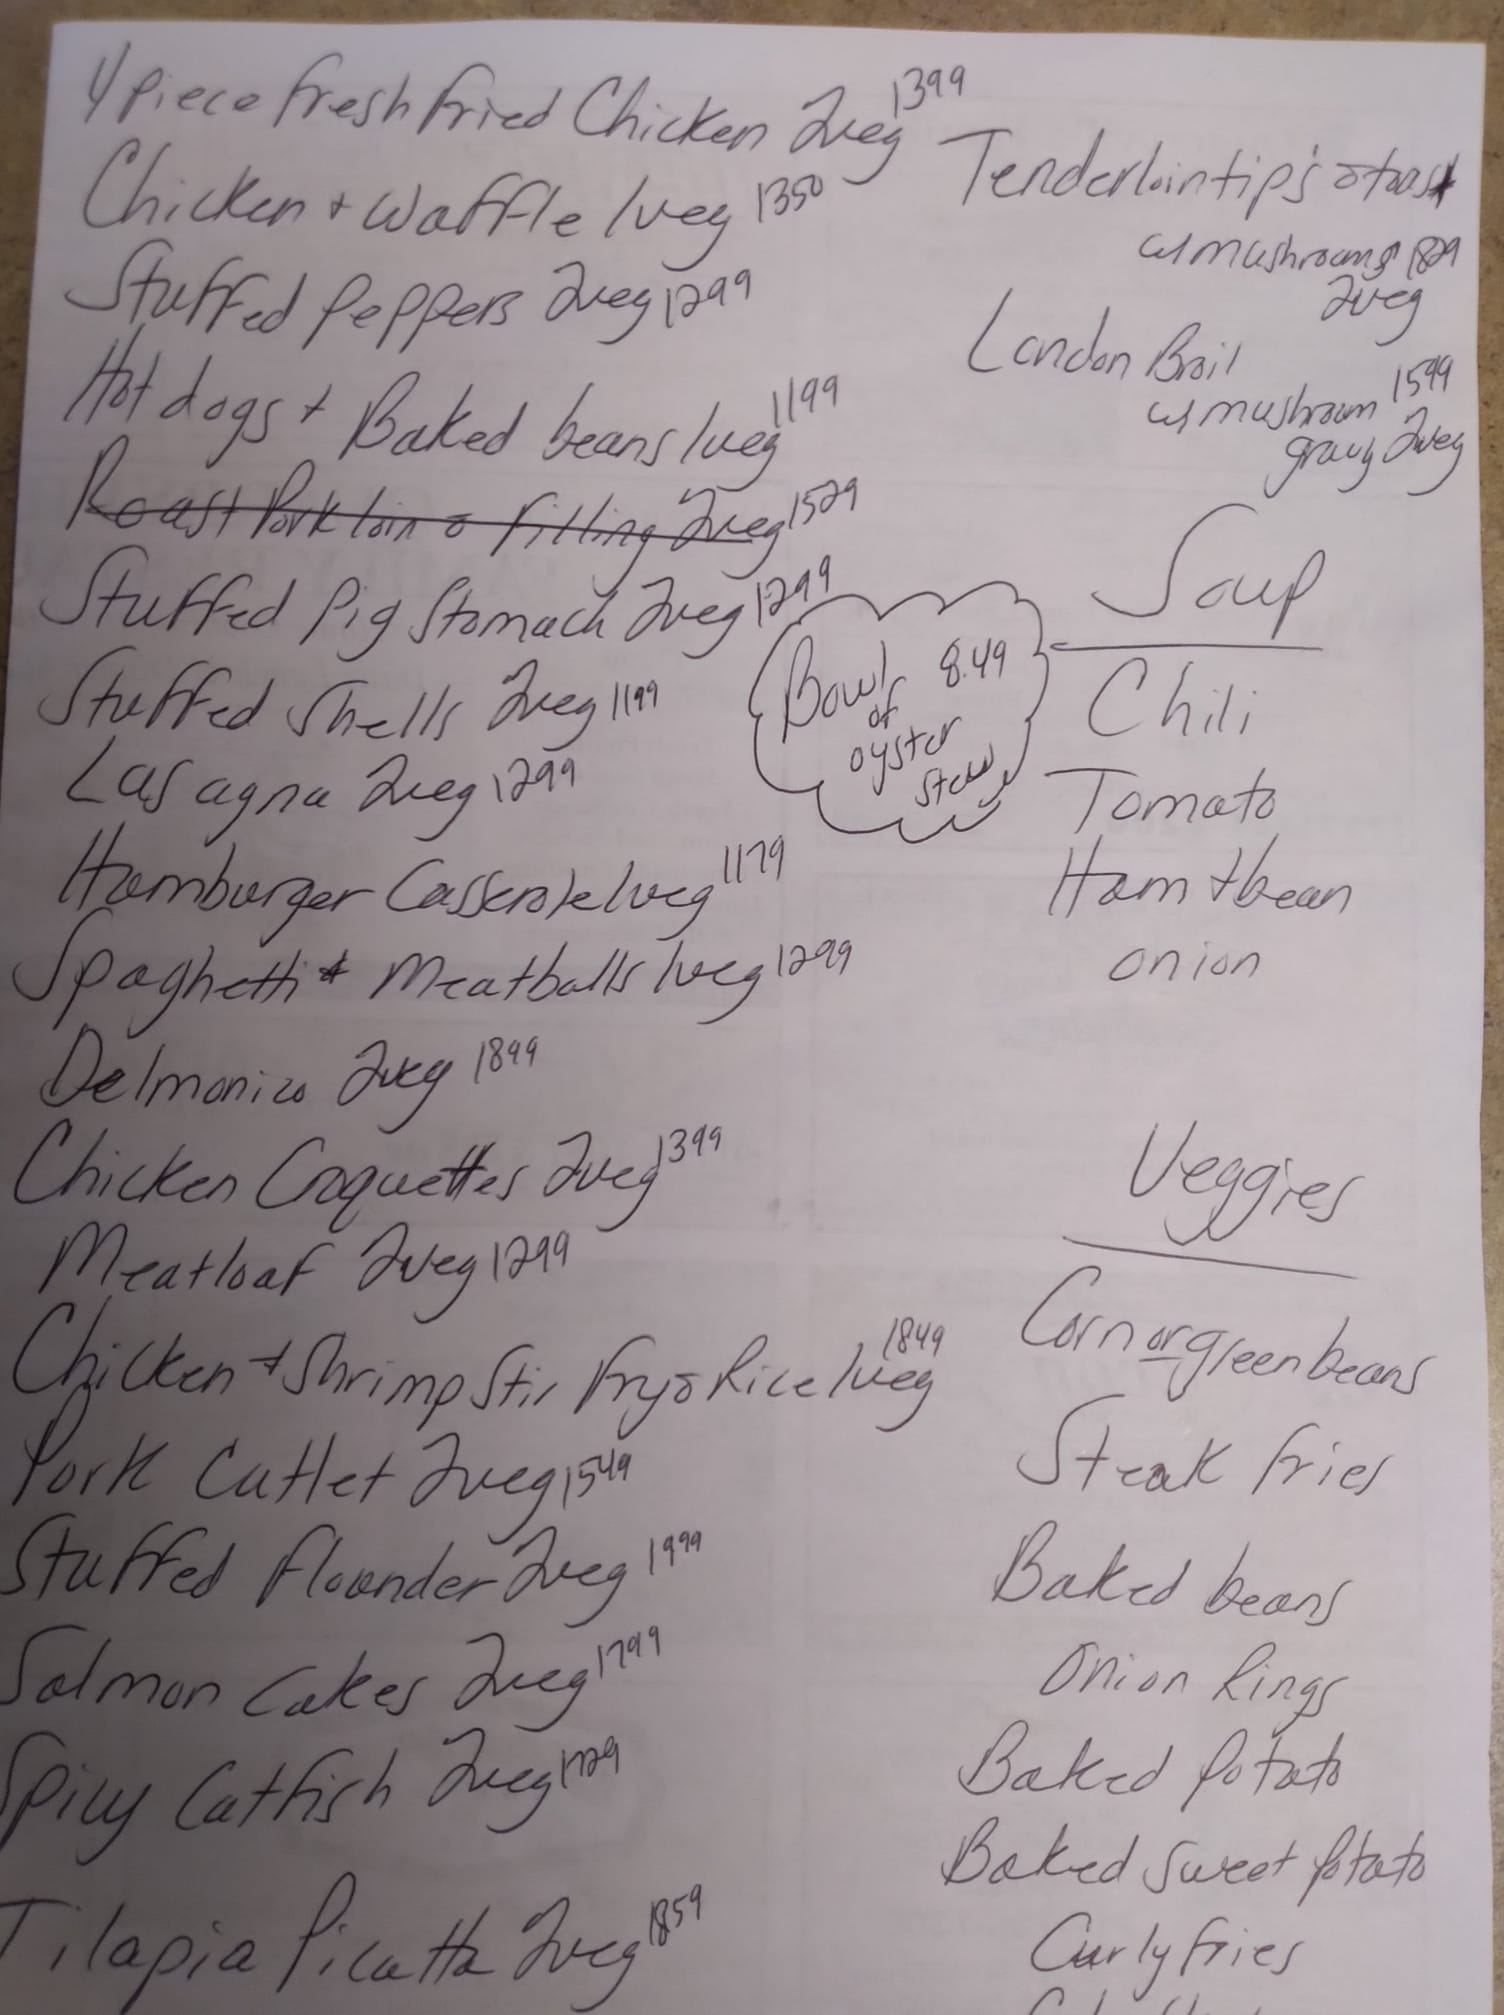 4 piece fresh fried Chicken 2veg 1399
Chicken + waffle 1veg 1350
Stuffed peppers 2veg 1299
Hot dogs + Baked beans 1veg 1199
Roast Pork loin o filling 2veg 1529
Stuffed Pig Stomach 2veg 1299
Stuffed Shells 2veg 1199
Lasagna 2veg 1299
Hamburger Casserole 1veg 1179
Spaghetti + Meatballs 1veg 1299
Delmonico 2veg 1899
Chicken Croquettes 2veg 1399
Meatloaf 2veg 1299
Chicken + Shrimp Stir Fry o Rice 1veg 1849
Pork Cutlet 2veg 1549
Stuffed flounder 2veg 1999
Salmon Cakes 2veg 1799
Spicy Catfish 2veg 1729
Tilapia Picatta 2veg 1859
Tenderloin tip's o toast
w/ mushrooms 1829
2veg
London Broil
w/ mushroom 1599
gravy 2veg
Bowl 8.49
of
oyster
stew
Soup
Chili
Tomato
Ham + bean
onion
Veggies
Corn or green beans
Steak fries
Baked beans
Onion Rings
Baked Potato
Baked Sweet Potato
Curly fries